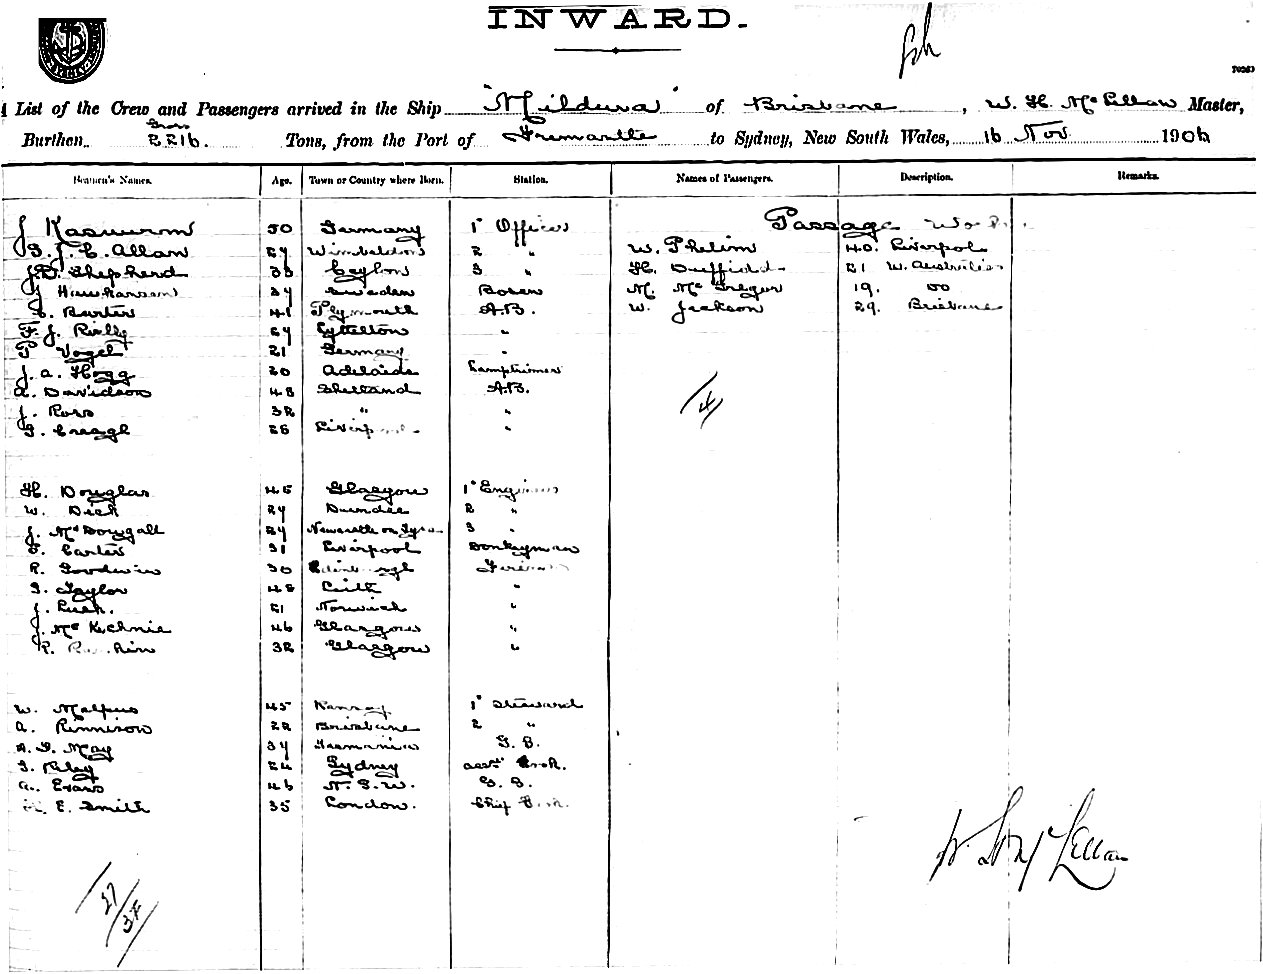 INWARD.
List of the Crew and Passengers arrived in the Ship "Mildura" of Brisbane, W. H. McLellan Master,
Gross
Burthen 2216. Tons, from the Port of Fremantle to Sydney, New South Wales, 16 Nov 1906
Seamen's Names. Age. Town or Country where Born. Station. Names of Passengers. Description. Remarks.
J 50 Germany 1st Officer Passage Work
J. C. Allan 29 Wimbledon 2 " W. Phelim 40. Liverpool
Shepherd 33 Ceylon 3 " H. Duffield 21 W. Australia
J 34 Sweden Bosun M. McGregor 19. do
Burter 41 Plymouth A.B. W. Jackson 29. Brisbane
F. J. Rielly 29 Lyttelton "
P Vogel 21 Germany "
J. A. Hogg 20 Adelaide Lamptrimmer
A. Davidson 48 Shetland A.B.
J. Ross 32 " "
Creagh 28 Liverpool "
(4)
H. Douglas 45 Glasgow 1st Engineer
W. Dick 29 Dundee 2 "
J. McDougall 29 Newcastle on Tyne 3 "
Carter 31 Liverpool Donkeyman
R. Goodwin 30 Edinburgh Fireman
Taylor 48 Leith "
J. Rush. 21 Norwich "
J. McKechnie 46 Glasgow "
R. Rankin 32 Glasgow "
W. Malpus 45 1st Steward
A. Rennison 22 Brisbane 2 "
May 34 Tasmania
Riley 24 Sydney asst Cook.
A. Evans 46 N.S.W.
E. Smith 35 London. Chief Cook.
27
W. McLellan